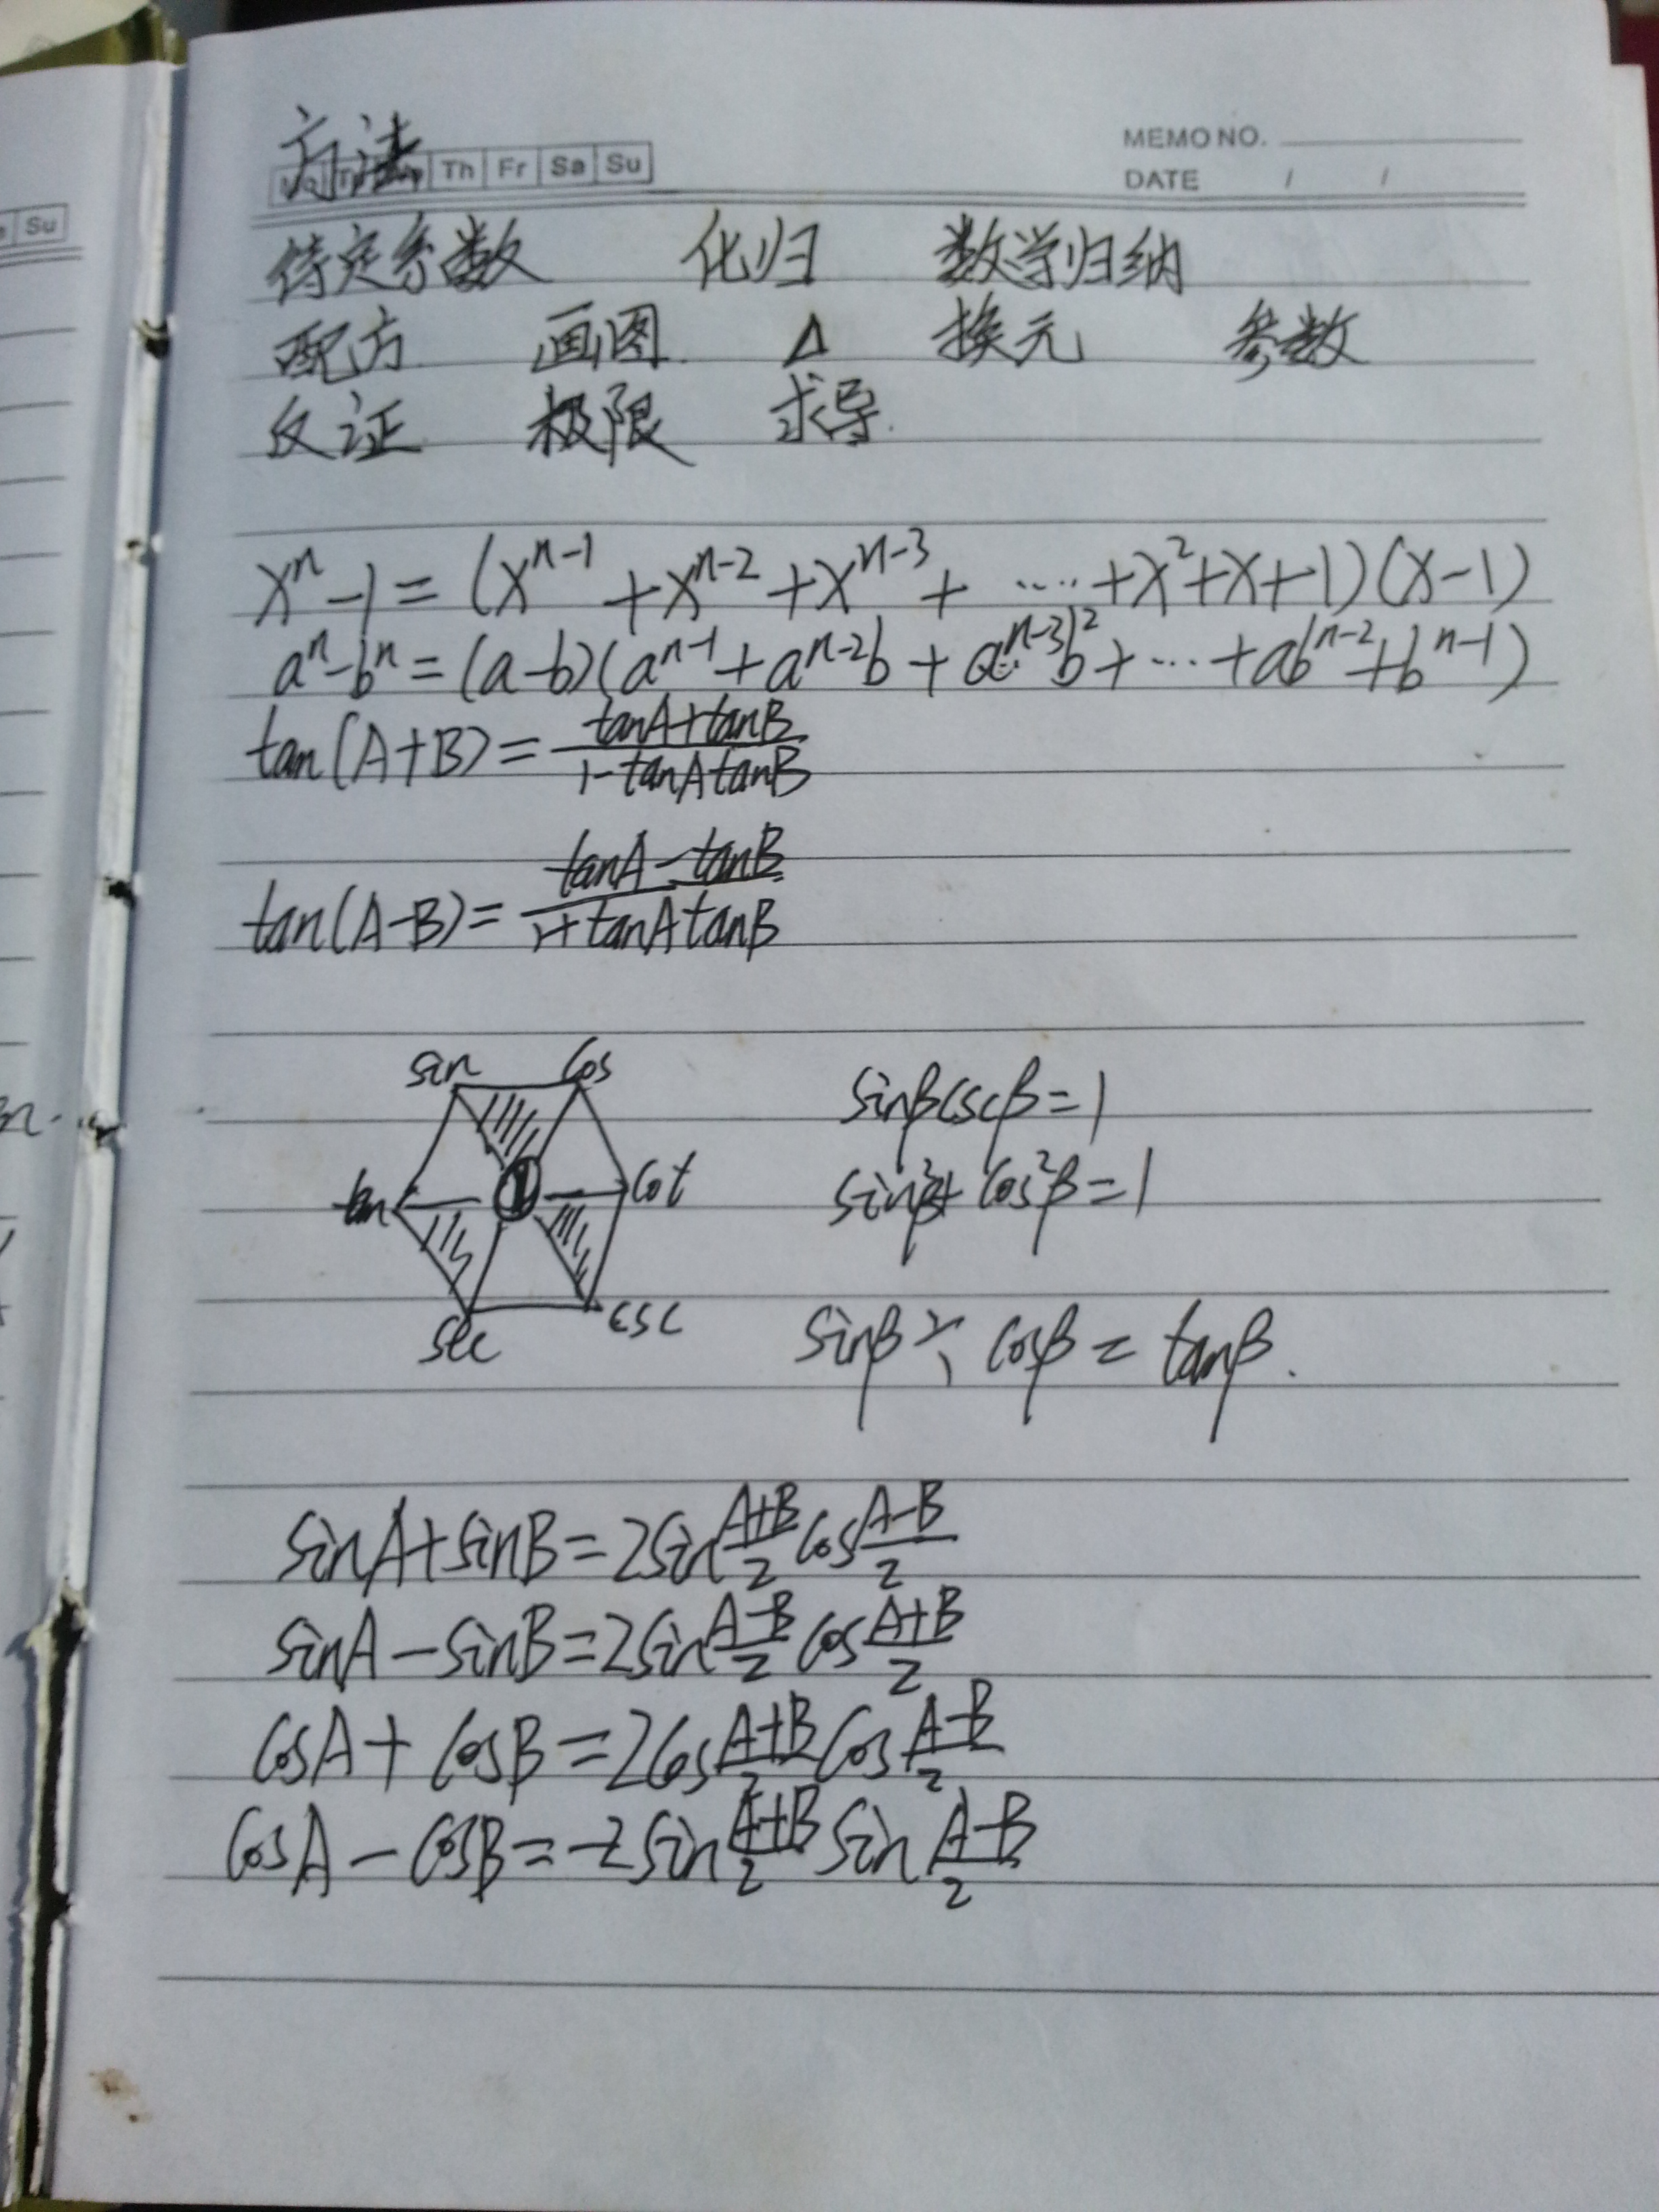 方法
Th Fr Sa Su
MEMO NO.
DATE / /
Su
待定系数 化归 数学归纳
配方 画图 Δ 换元 参数
反证 极限 求导.
xⁿ-1=(xⁿ⁻¹+xⁿ⁻²+xⁿ⁻³+……+x²+x+1)(x-1)
aⁿ-bⁿ=(a-b)(aⁿ⁻¹+aⁿ⁻²b+aⁿ⁻³b²+…+abⁿ⁻²+bⁿ⁻¹)
tan(A+B)=(tanA+tanB)/(1-tanAtanB)
tan(A-B)=(tanA-tanB)/(1+tanAtanB)
sin cos
sinβcscβ=1
tan 1 cot
sin²β+cos²β=1
sec csc
sinβ÷cosβ=tanβ.
sinA+sinB=2sin(A+B)/2 cos(A-B)/2
sinA-sinB=2sin(A-B)/2 cos(A+B)/2
cosA+cosB=2cos(A+B)/2 cos(A-B)/2
cosA-cosB=-2sin(A+B)/2 sin(A-B)/2